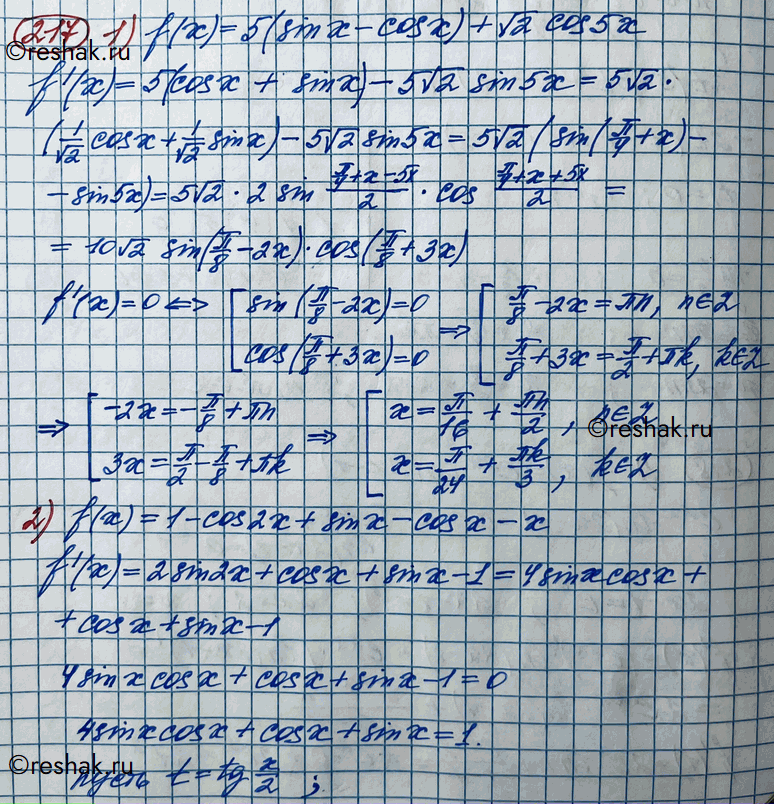 217 1) f(x)=5(sinx-cosx)+√2 cos5x
©reshak.ru
f'(x)=5(cosx + sinx)-5√2 sin5x=5√2·
(1/√2 cosx+1/√2 sinx)-5√2 sin5x=5√2 (sin(π/4+x)-
-sin5x)=5√2·2 sin (π/4+x-5x)/2 · cos (π/4+x+5x)/2 =
=10√2 sin(π/8-2x)·cos(π/8+3x)
f'(x)=0 <=> [sin(π/8-2x)=0 => [π/8-2x=πn, n∈Z
cos(π/8+3x)=0 π/8+3x=π/2+πk, k∈Z
=> [-2x=-π/8+πn => [x=π/16+πn/2, n∈Z
©reshak.ru
3x=π/2-π/8+πk x=π/24+πk/3, k∈Z
2) f(x)=1-cos2x+sinx-cosx-x
f'(x)=2sin2x+cosx+sinx-1=4sinxcosx+
+cosx+sinx-1
4sinxcosx+cosx+sinx-1=0
4sinxcosx+cosx+sinx=1.
©reshak.ru
пусть t=tg x/2 ;